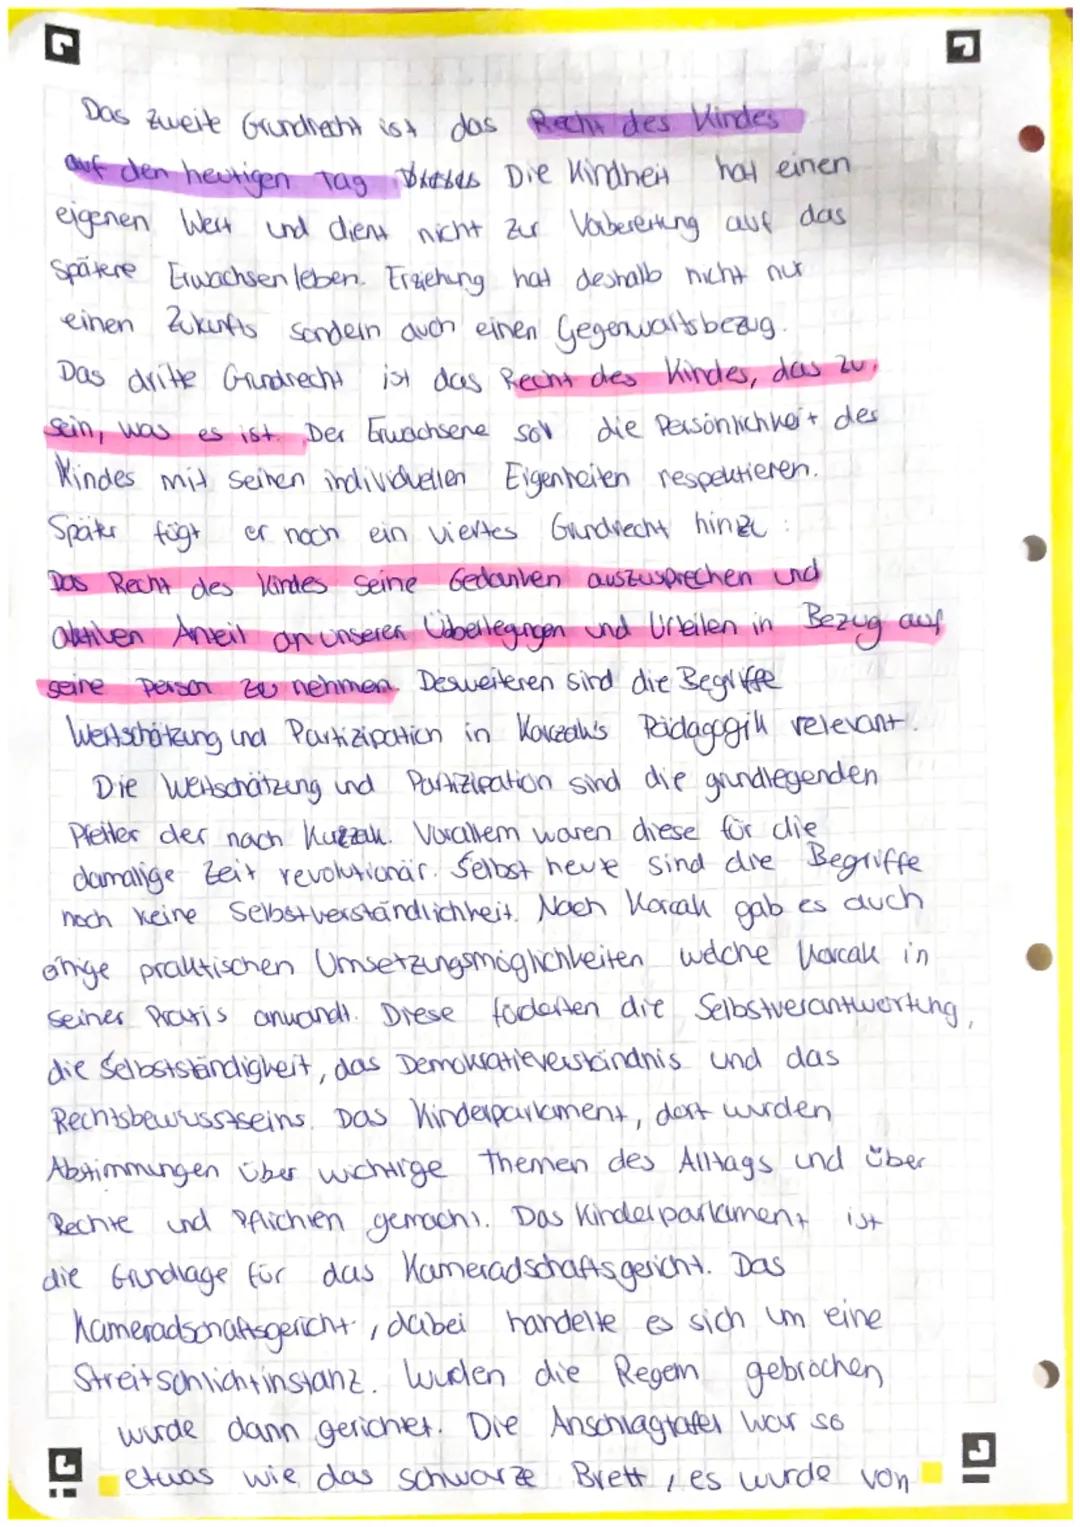 Das zweite Grundrecht ist das Recht des Kindes
auf den heutigen Tag. Die Kindheit hat einen
eigenen Wert und dient nicht zur Vorbereitung auf das
spätere Erwachsenleben. Erziehung hat deshalb nicht nur
einen Zukunfts sondern auch einen Gegenwartsbezug.
Das dritte Grundrecht ist das Recht des Kindes, das zu
sein, was es ist. Der Erwachsene soll die Persönlichkeit des
Kindes mit seinen individuellen Eigenheiten respektieren.
Später fügt er noch ein viertes Grundrecht hinzu:
Das Recht des Kindes seine Gedanken auszusprechen und
aktiven Anteil an unseren Überlegungen und Urteilen in Bezug auf
seine Person zu nehmen. Desweiteren sind die Begriffe
Wertschätzung und Partizipation in Korczak's Pädagogik relevant.
Die Wertschätzung und Partizipation sind die grundlegenden
Pfeiler der nach Kozzak. Vorallem waren diese für die
damalige Zeit revolutionär. Selbst heute sind die Begriffe
noch keine Selbstverständlichkeit. Nach Korcak gab es auch
einige praktischen Umsetzungsmöglichkeiten welche Korcak in
seiner Praxis anwandt. Diese forderten die Selbstverantwortung,
die Selbstständigkeit, das Demokratieverständnis und das
Rechtsbewusstseins. Das Kinderparlament, dort wurden
Abstimmungen über wichtige Themen des Alltags und über
Rechte und Pflichten gemacht. Das Kinderparlament ist
die Grundlage für das Kameradschaftsgericht. Das
Kameradschaftsgericht, dabei handelte es sich um eine
Streitschlichtinstanz. Wurden die Regeln gebrochen
wurde dann gerichtet. Die Anschlagtafel war so
etwas wie das schwarze Brett, es wurde von